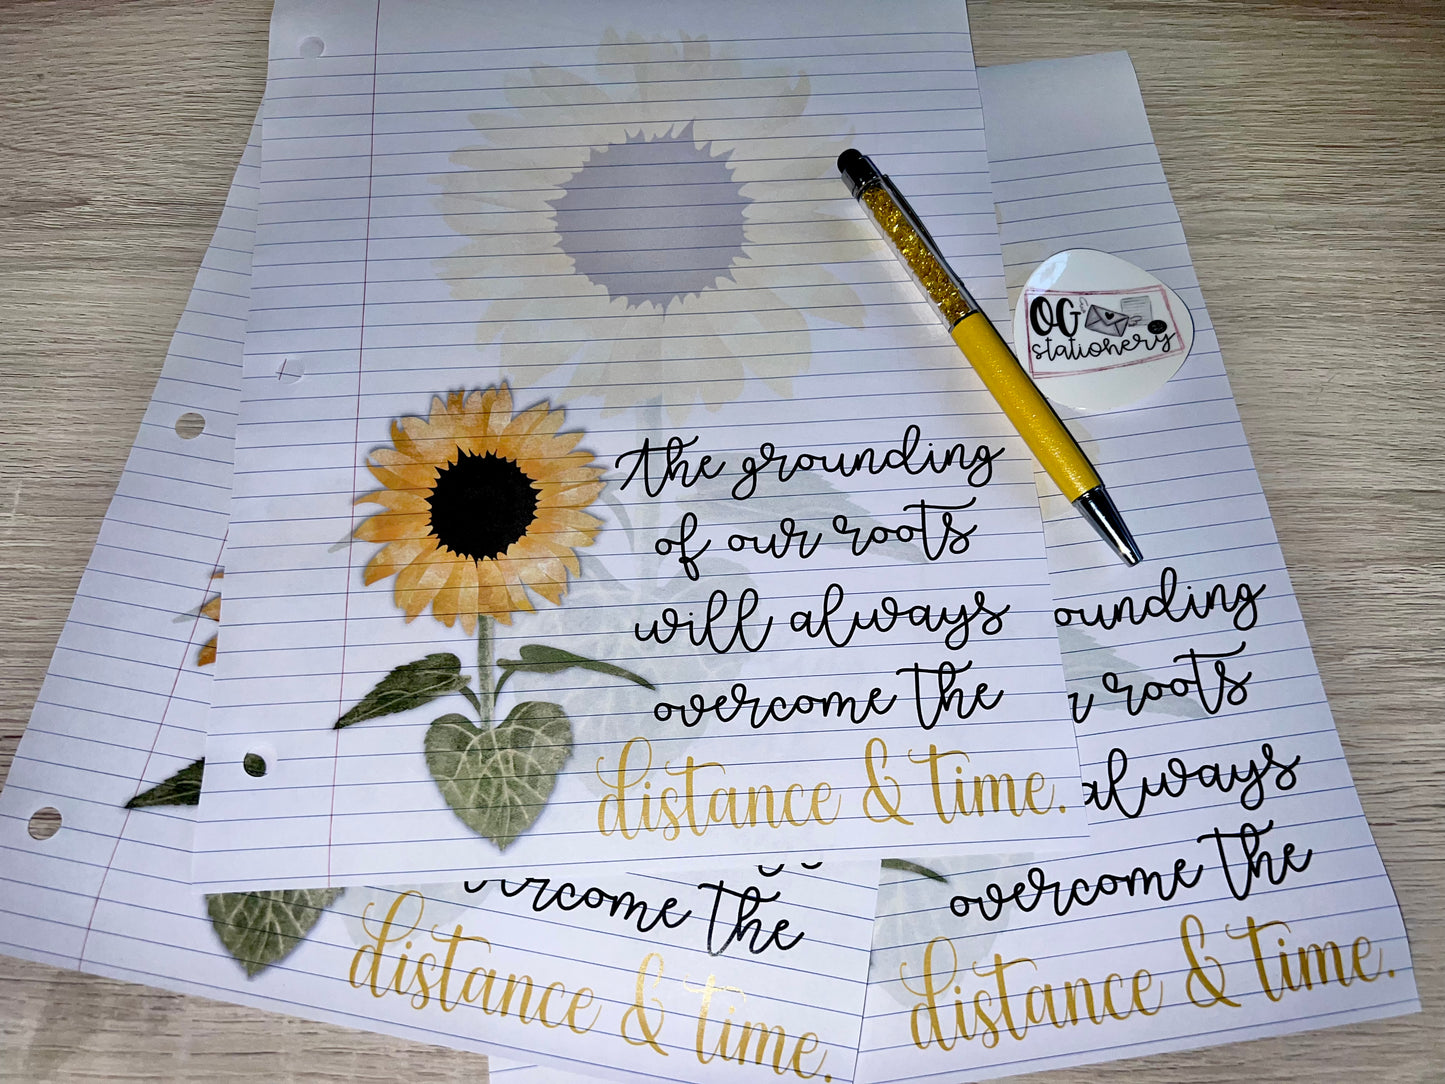 the grounding
of our roots
will always
overcome the
distance & time.
OG
stationery
ounding
roots
always
overcome the
distance & time.
overcome the
distance & time.